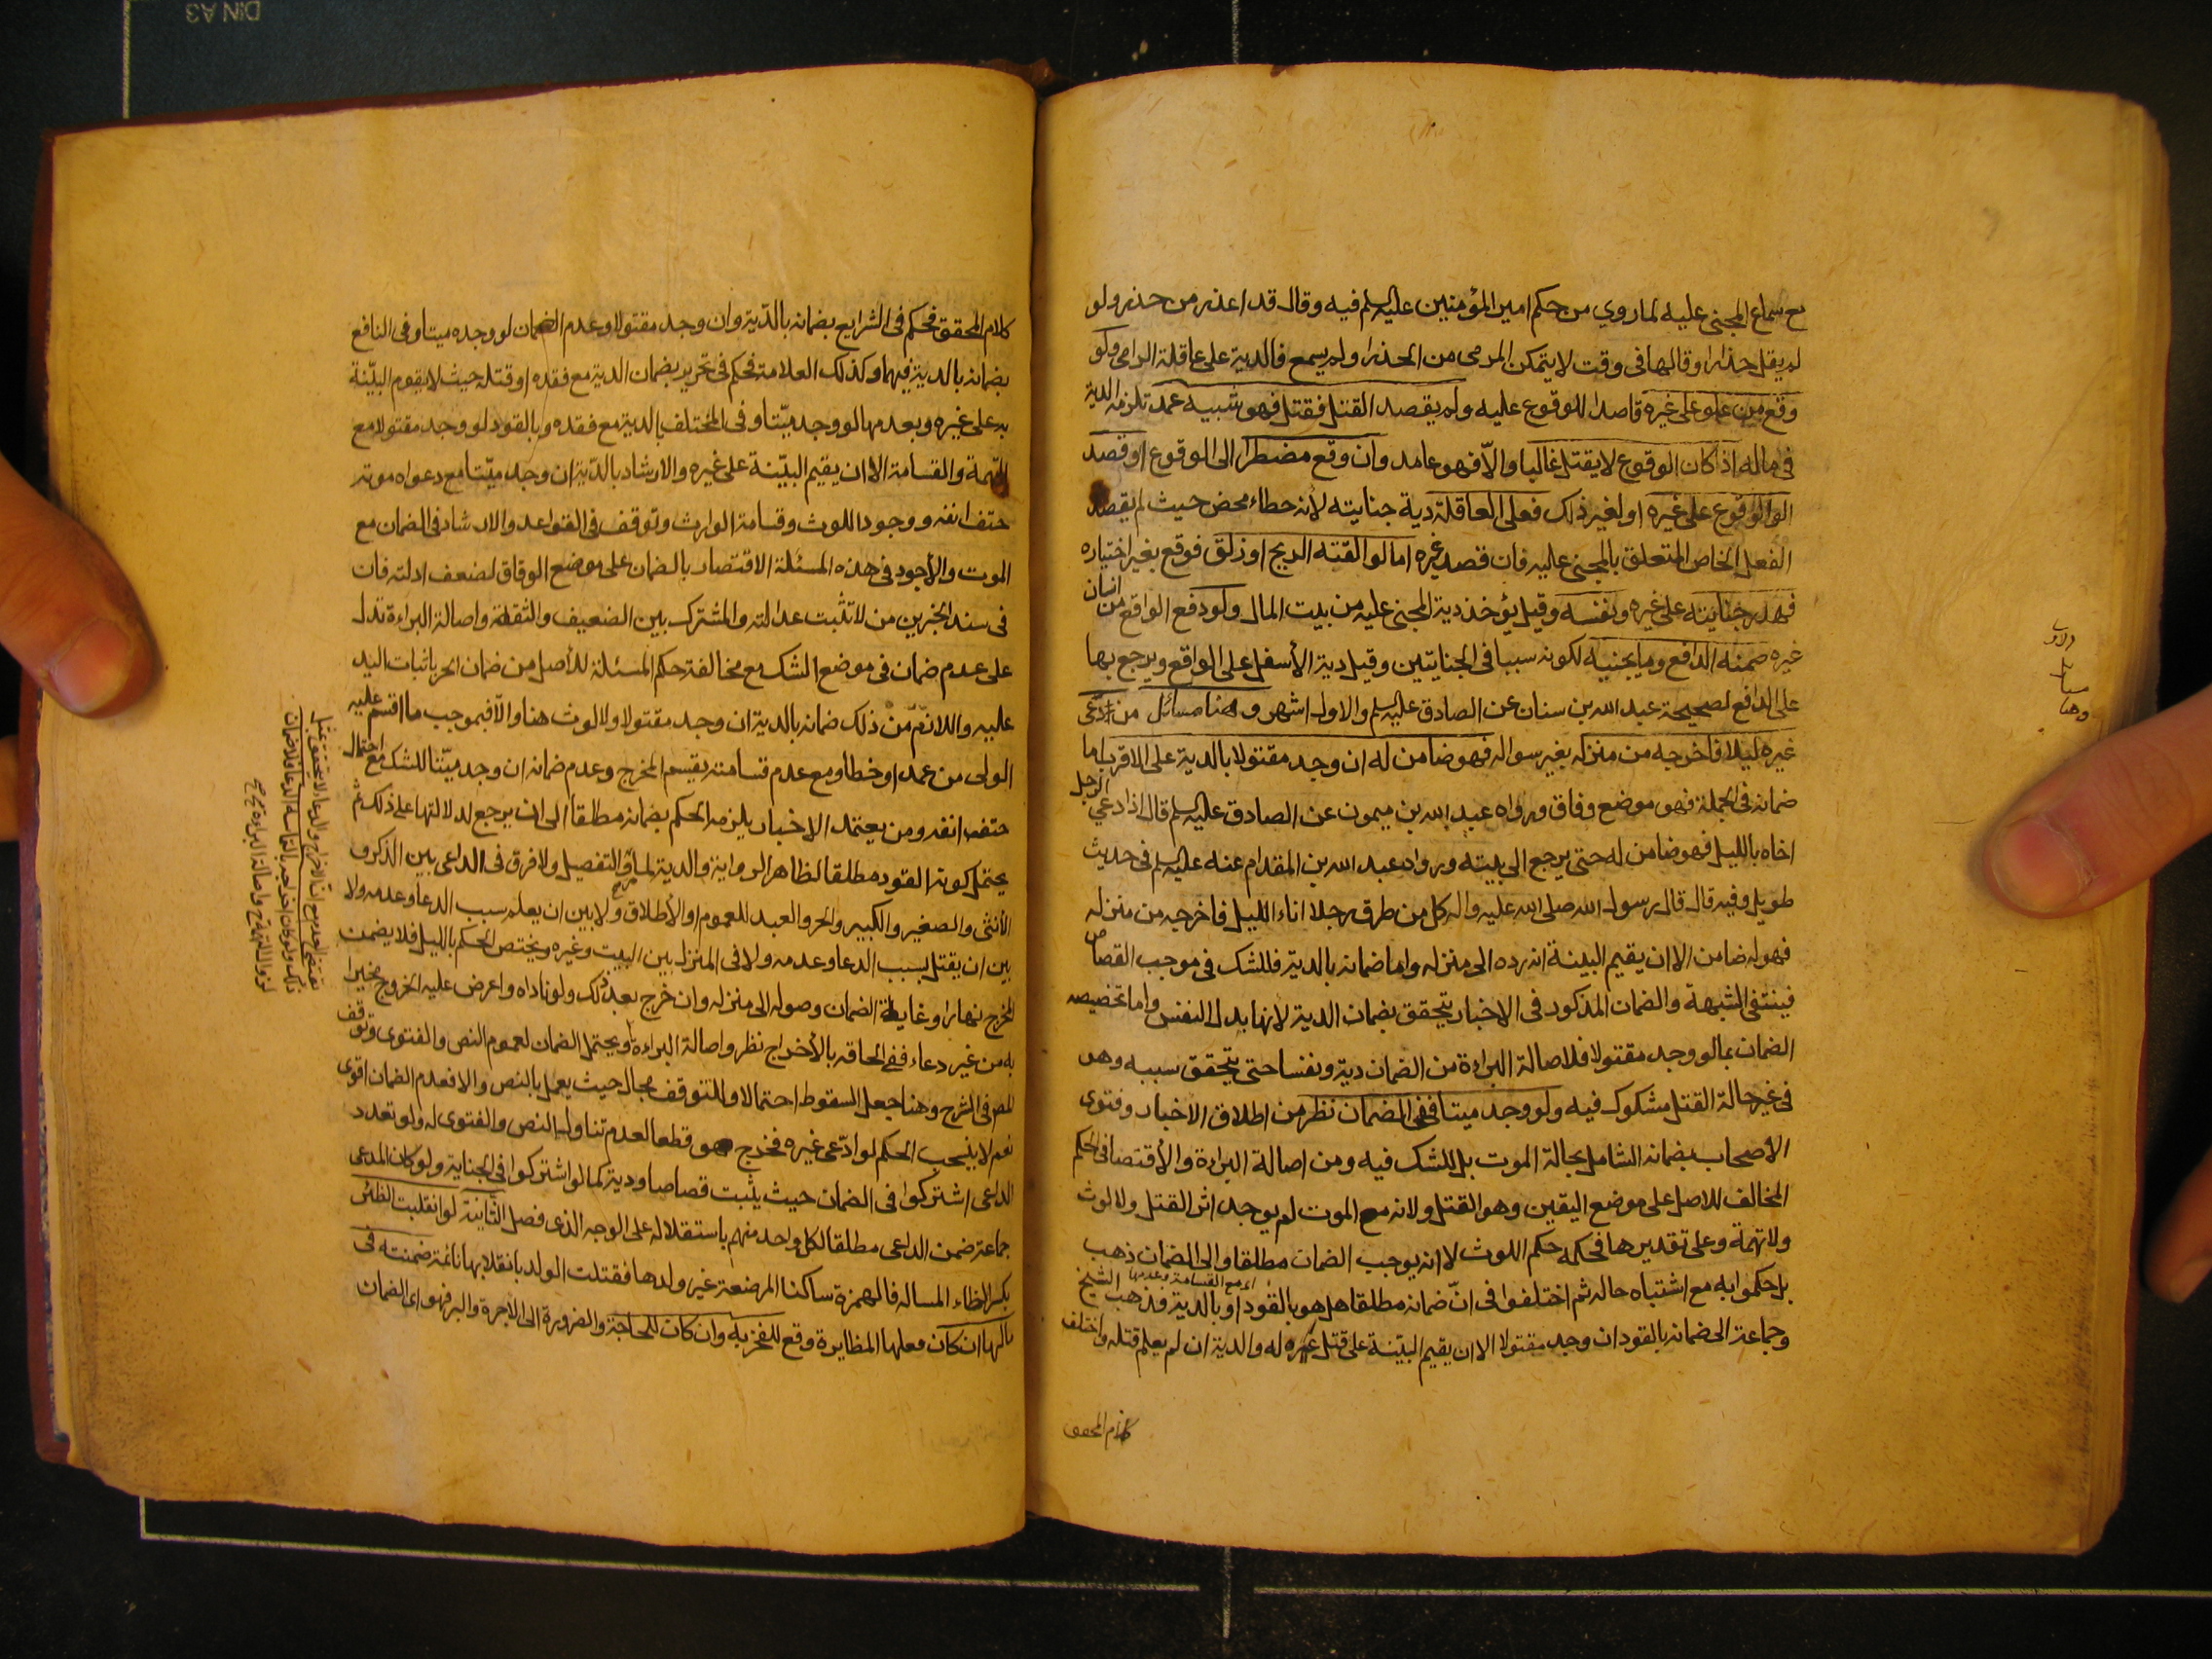 مع سماع المجنى عليه لما روي من حكم امير المؤمنين عليه السلم فيه وقال قد اعذر من حذر ولو
لم يقل حذار او قالها فى وقت لا يتمكن المرمى من الحذر او لم يسمع فالدية على عاقلة الرامى ولو
وقع من علو على غيره قاصدا للوقوع عليه ولم يقصد القتل فقتل فهو شبيه عمد تلزمه الدية
فى ماله اذا كان الوقوع لا يقتل غالبا والّا فهو عامد وان وقع مضطرا الى الوقوع او قصد
الوقوع على غيره او لغير ذلك فعلى العاقلة دية جنايته لأنه خطاء محض حيث لم يقصد
الفعل الخاص المتعلق بالمجنى عليه فان قصد غيره اما لو القته الريح او زلق فوقع بغير اختياره
فهدر جنايته على غيره ونفسه وقيل يؤخذ دية المجنى عليه من بيت المال ولو دفع الواقع من انسان
غيره ضمنه الدافع وما يجنيه لكونه سببا فى الجنايتين وقيل دية الأسفل على الواقع ويرجع بها
على الدافع لصحيحة عبد الله بن سنان عن الصادق عليه السلم والاول اشهر وهنا مسائل من ادّعى
غيره ليلا فاخرجه من منزله بغير سواله فهو ضامن له ان وجد مقتولا بالدية على الاقرب اما
ضمانه فى الجملة فهو موضع وفاق ورواه عبد الله بن ميمون عن الصادق عليه السلم قال اذا دعى الرجل
اخاه بالليل فهو ضامن له حتى يرجع الى بيته ورواه عبد الله بن المقدام عنه عليه السلم فى حديث
طويل وفيه قال قال رسول الله صلى الله عليه واله كل من طرق رجلا اناء الليل فاخرجه من منزله
فهو له ضامن الا ان يقيم البينة انه رده الى منزله واما ضمانه بالدية فللشك فى موجب القصاص
فينتفى للشبهة والضمان المذكور فى الاخبار يتحقق بضمان الدية لانها بدل النفس واما تخصيصه
الضمان بما لو وجد مقتولا فلاصالة البراءة من الضمان دية ونفسا حتى يتحقق سببه وهو
فى غير حالة القتل مشكوك فيه ولو وجد ميتا ففى الضمان نظر من اطلاق الاخبار وفتوى
الاصحاب بضمانه الشامل بحالة الموت بل للشك فيه ومن اصالة البراءة والأقتصا فى الحكم
المخالف للاصل على موضع اليقين وهو القتل ولانه مع الموت لم يوجد اثر القتل ولا لوث
ولا تهمة وعلى تقديرها فحكمه حكم اللوث لا انه يوجب الضمان مطلقا والى الضمان ذهب
بل حكموا به مع اشتباه حاله ثم اختلفوا فى انّ ضمانه مطلقا هل هو بالقود او بالدية فذهب الشيخ
اى مع القسامة وعدمها
وجماعة الى ضمانه بالقود ان وجد مقتولا الا ان يقيم البيّنة على قتل غيره له والدية ان لم يعلم قتله واختلف
كلام المحقق
كلام المحقق فحكم فى الشرايع بضمانه بالدّية وان وجد مقتولا وعدم الضمان لو وجده ميتا وفى النافع
بضمانه بالدية فيهما وكذلك العلامة فحكم فى تحرير بضمان الدية مع فقده او قتله حيث لا يقوم البيّنة
به على غيره وبعدمها لو وجد ميّتا وفى المختلف بالدية مع فقده وبالقود لو وجد مقتولا مع
التهمة والقسامة الا ان يقيم البيّنة على غيره والارشاد بالدّية ان وجد ميّتا مع دعواه موته
حتف انفه ووجود اللوث وقسامة الوارث وتوقف فى القواعد والارشاد فى الضمان مع
الموت والأجود فى هذه المسئلة الاقتصار بالضمان على موضع الوفاق لضعف ادلته فان
فى سند الخبرين من لا تثبت عدالته والمشترك بين الضعيف والثقة واصالة البراءة تدل
على عدم ضمان فى موضع الشك مع مخالفة حكم المسئلة للأصل من ضمان الحر باثبات اليد
عليه واللازم من ذلك ضمانه بالدية ان وجد مقتولا ولا لوث هنا والّا فبموجب ما اقسم عليه
الولى من عمد او خطأ ومع عدم قسامته يقسم المخرج وعدم ضمانه ان وجد ميّتا للشك مع احتمال
حتف انفه ومن يعتمد الاخبار يلزمه الحكم بضمانه مطلقا الى ان يرجع لدلالتها على ذلك ثم
يحتمل كونه القود مطلقا لظاهر الرواية والدية لما مرّ والتفصيل ولا فرق فى الداعى بين الذكر و
الأنثى والصغير والكبير والحر والعبد للعموم او الأطلاق ولا بين ان يعلم سبب الدعا وعدمه ولا
بين ان يقتل بسبب الدعا وعدمه ولا فى المنزل بين البيت وغيره ويختص الحكم بالليل فلا يضمن
المخرج نهارا وغاية الضمان وصوله الى منزله وان خرج بعد ذلك ولو ناداه واعرض عليه الخروج مخيرا
به من غير دعاء ففى الحاقه بالأخراج نظر واصالة البراءة ويحتمل الضمان لعموم النص والفتوى وتوقف
المص فى الشرح وهنا جعل السقوط احتمالا وللتوقف مجال حيث يعمل بالنص والا فعدم الضمان اقوى
نعم لا ينسحب الحكم لو ادّعى غيره فخرج هو قطعا لعدم تناول النص والفتوى له ولو تعدد
الداعى اشتركوا فى الضمان حيث يثبت قصاصا ودية كما لو اشتركوا فى الجناية ولو كان المدعى
جماعة ضمن الداعى مطلقا لكل واحد منهم باستقلاله على الوجه الذى فصل الثانية لو انقلبت الظئر
بكسر الظاء المساله فالهمزة ساكنا المرضعة غير ولدها فقتلت الولد بانقلابها نائمة ضمنته فى
مالها ان كان فعلها المظايرة وقع للفخر به وان كان للحاجة والضرورة الى الاجرة والبر فهو اى الضمان